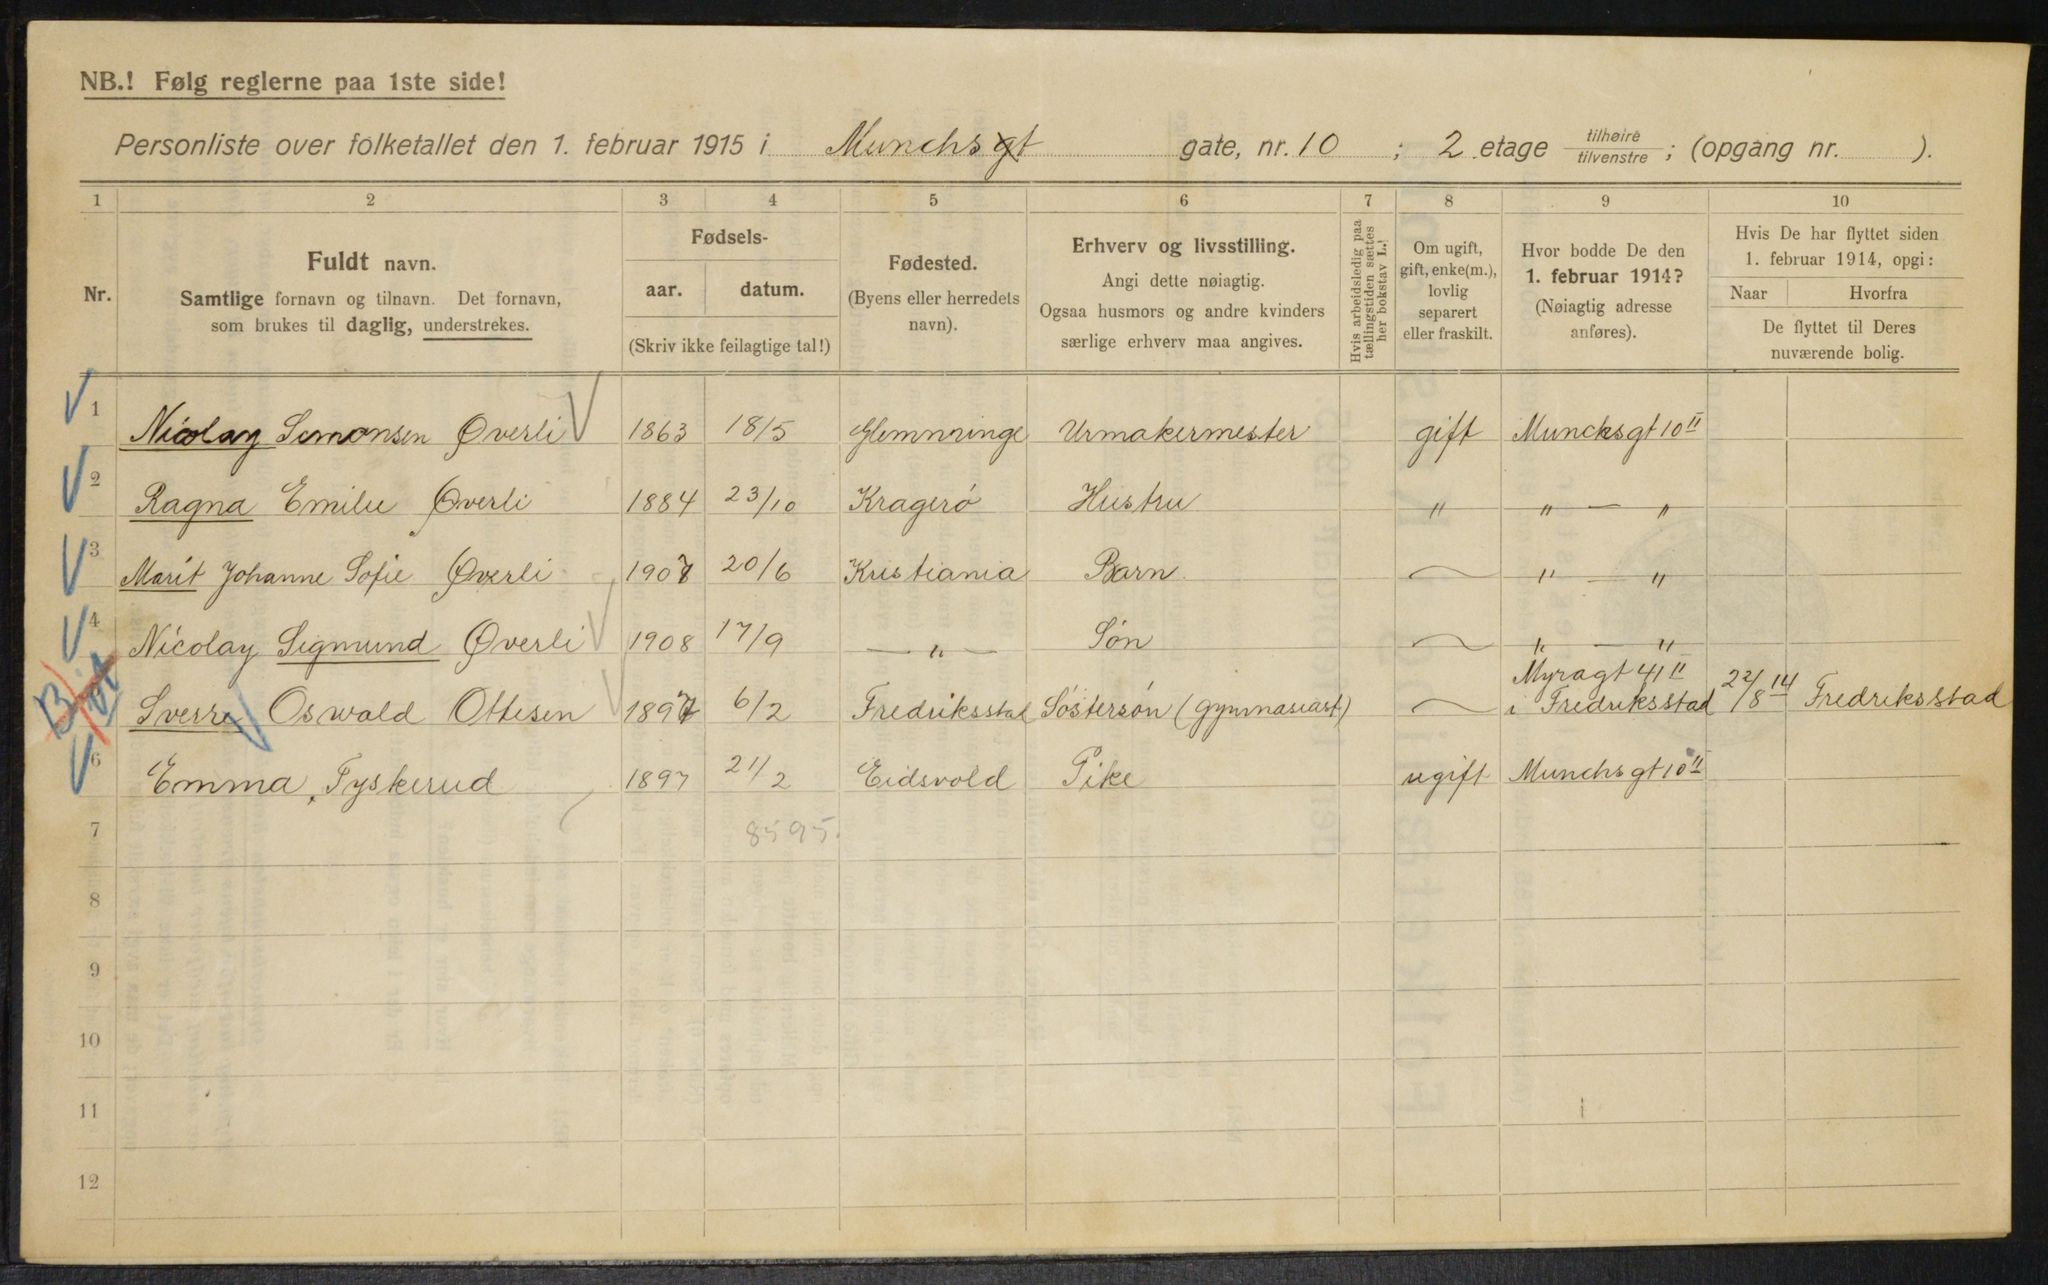 NB.! Følg reglerne paa 1ste side!
Personliste over folketallet den 1. februar 1915 i Munchsgt gate, nr. 10 ; 2 etage tilhøire tilvenstre ; (opgang nr. ).
1 2 3 4 5 6 7 8 9 10
Nr.
Fuldt navn.
Samtlige fornavn og tilnavn. Det fornavn,
som brukes til daglig, understrekes.
Fødsels-
aar. datum.
(Skriv ikke feilagtige tal!)
Fødested.
(Byens eller herredets
navn).
Erhverv og livsstilling.
Angi dette nøiagtig.
Ogsaa husmors og andre kvinders
særlige erhverv maa angives.
Hvis arbeidsledig paa
tællingstiden sættes
her bokstav L.!
Om ugift,
gift, enke(m.),
lovlig
separert
eller fraskilt.
Hvor bodde De den
1. februar 1914?
(Nøiagtig adresse
anføres).
Hvis De har flyttet siden
1. februar 1914, opgi:
Naar Hvorfra
De flyttet til Deres
nuværende bolig.
1 Nicolay Simonsen Øverli 1863 18/5 Glemminge Urmakermester gift Munchsgt 10 II
2 Ragna Emilie Øverli 1884 23/10 Kragerö Hustru " " — "
3 Marit Johanne Sofie Øverli 1907 20/6 Kristiania Barn — " — "
4 Nicolay Sigmund Øverli 1908 17/9 — " — Sön — " — "
Myragt 41 II
Sverre Oswald Ottesen 1897 6/2 Fredriksstad Söstersön (gymnasiast) — i Fredriksstad 22/8 14 Fredriksstad
6 Emma Tyskerud 1897 21/2 Eidsvold Pike ugift Munchsgt 10 II
7 8595.
8
9
10
11
12